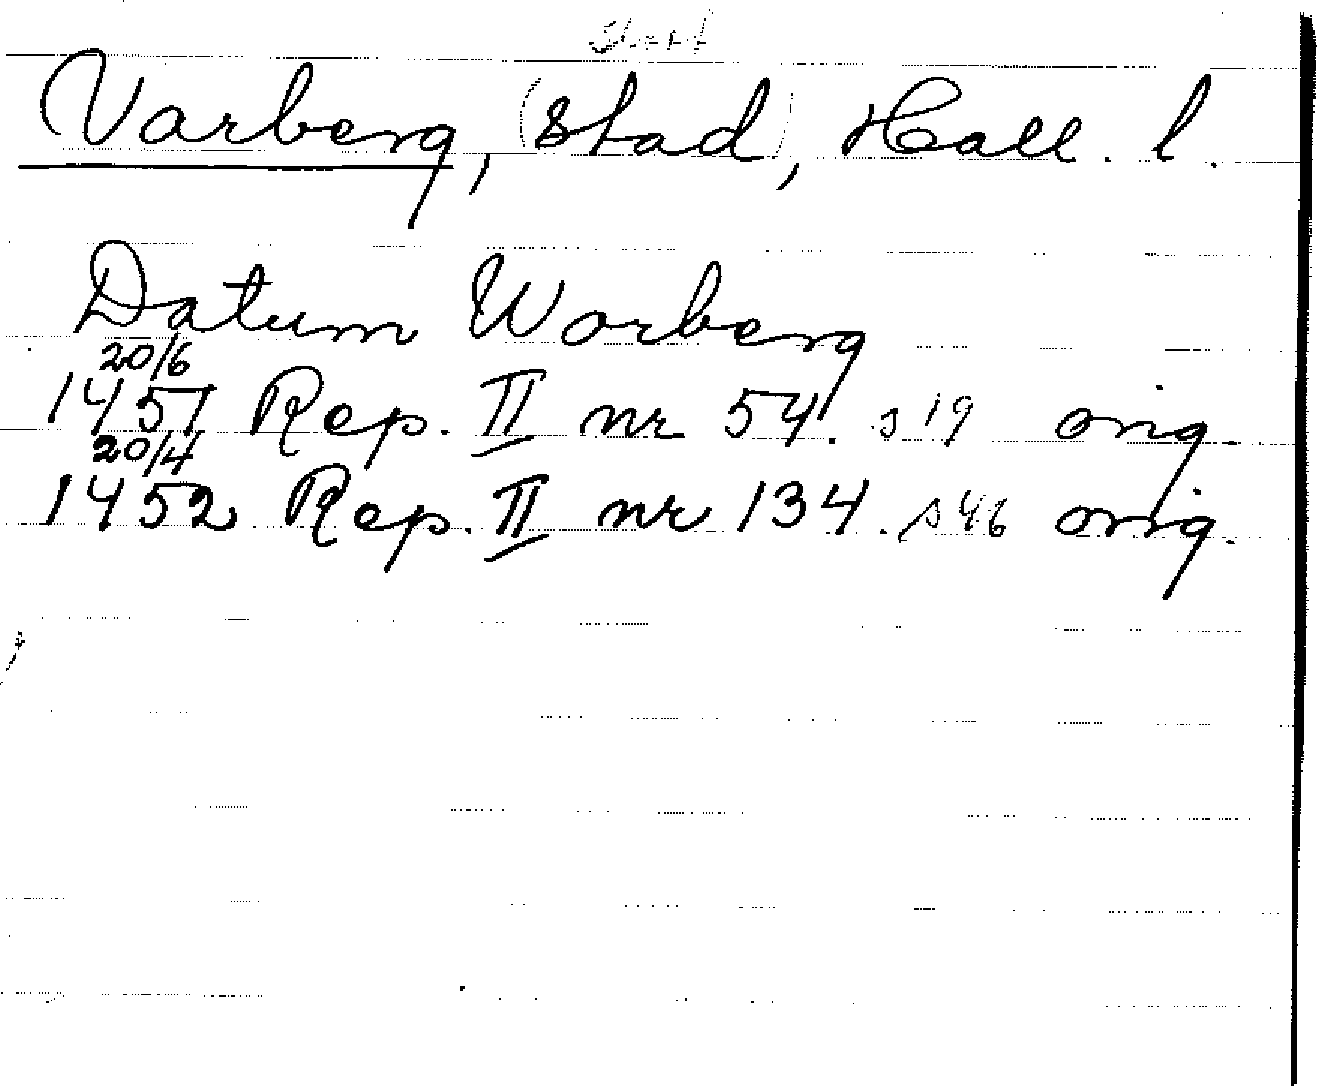 Stad
Varberg, (Stad), Hall. l.
Datum Worberg
20/6
1451 Rep. II nr 54. s 19 orig.
20/4
1452 Rep. II nr 134. s 46 orig.